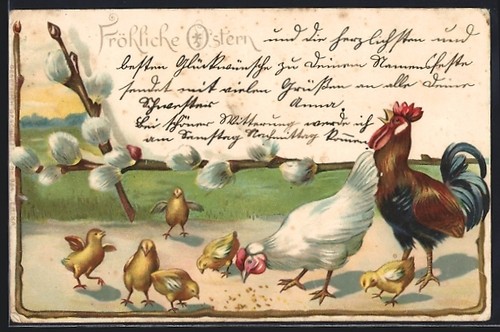 Fröhliche Ostern und die herzlichsten und
besten Glückwünsche zu Deinem Namensfeste
sendet mit vielen Grüßen an alle Deine
Schwester Anna.
Bei schöner Witterung werde ich
am Samstag Nachmittag kommen